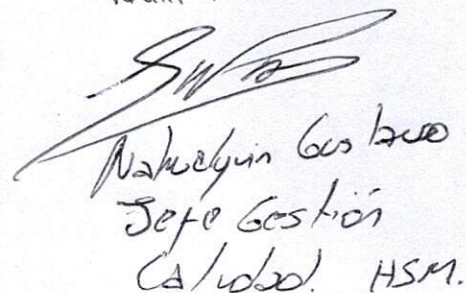 Nahuelquin Gustavo
Jefe Gestión
Calidad. HSM.